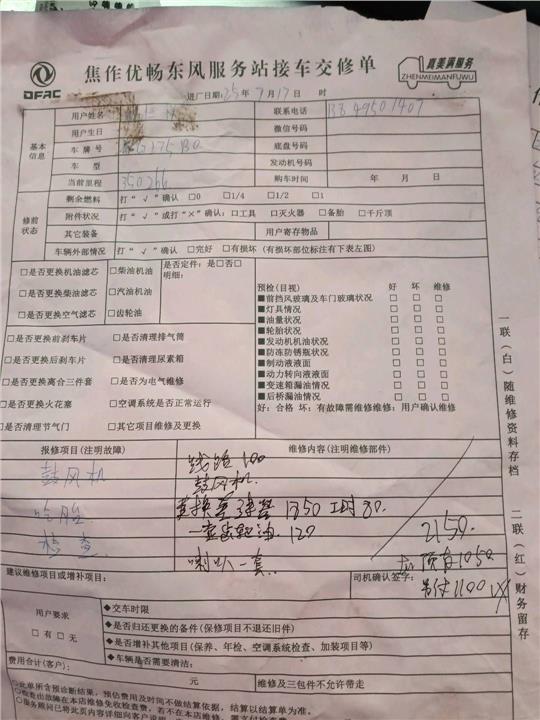 DFAC
焦作优畅东风服务站接车交修单
真美满服务
ZHENMEIMANFUWU
进厂日期:25年7月17日 时
用户姓名
联系电话
用户生日
微信号码
基本信息
车牌号
底盘号码
车型
发动机号码
当前里程 350266
购车时间 年 月 日
修前状态
剩余燃料 打“√”确认 □0 □1/4 □1/2 □1
附件状况 打“√”或打“×”确认:□工具 □灭火器 □备胎 □千斤顶
其它装备 用户寄存物品
车辆外部情况 打“√”确认 □完好 □有损坏(有损坏部位标注有下表左图)
□是否更换机油滤芯 □柴油机油 是否定件:是□否□
明细:
□是否更换柴油滤芯 □汽油机油
□是否更换空气滤芯 □齿轮油
预检(目视) 好 坏 维修
■前挡风玻璃及车门玻璃状况 □ □ □
■灯具情况 □ □ □
■油量状况 □ □ □
■轮胎状况 □ □ □
■发动机机油状况 □ □ □
■防冻防锈瓶状况 □ □ □
■制动液液面 □ □ □
■动力转向液液面 □ □ □
■变速箱漏油情况 □ □ □
■后桥漏油情况 □ □ □
好:合格 坏:有故障需维修维修:用户确认维修
□是否更换前刹车片 □是否清理排气筒
□是否更换后刹车片 □是否清理尿素箱
□是否更换离合三件套 □是否为电气维修
□是否更换火花塞 □空调系统是否正常运行
□是否清理节气门 □其它项目维修及更换
一联(白)随维修资料存档
二联(红)财务留存
报修项目(注明故障) 维修内容(注明维修部件)
线路100
鼓风机 鼓风机
1350 工时80.
检查 一壶齿轮油.120
喇叭一套
2150.
1050
1100
建议维修项目或增补项目:
司机确认签字:
用户要求
□有 □无
◆交车时限
◆是否归还更换的备件(保修项目不退还旧件)
◆是否增补其他项目(保养、年检、空调系统检查、加装项目等)
◆车辆是否需要清洁:
费用合计(客户): 元 维修及三包件不允许带走
○此单所含预诊断结果,预估费用及时间不做结算依据,结算以结算单为准。